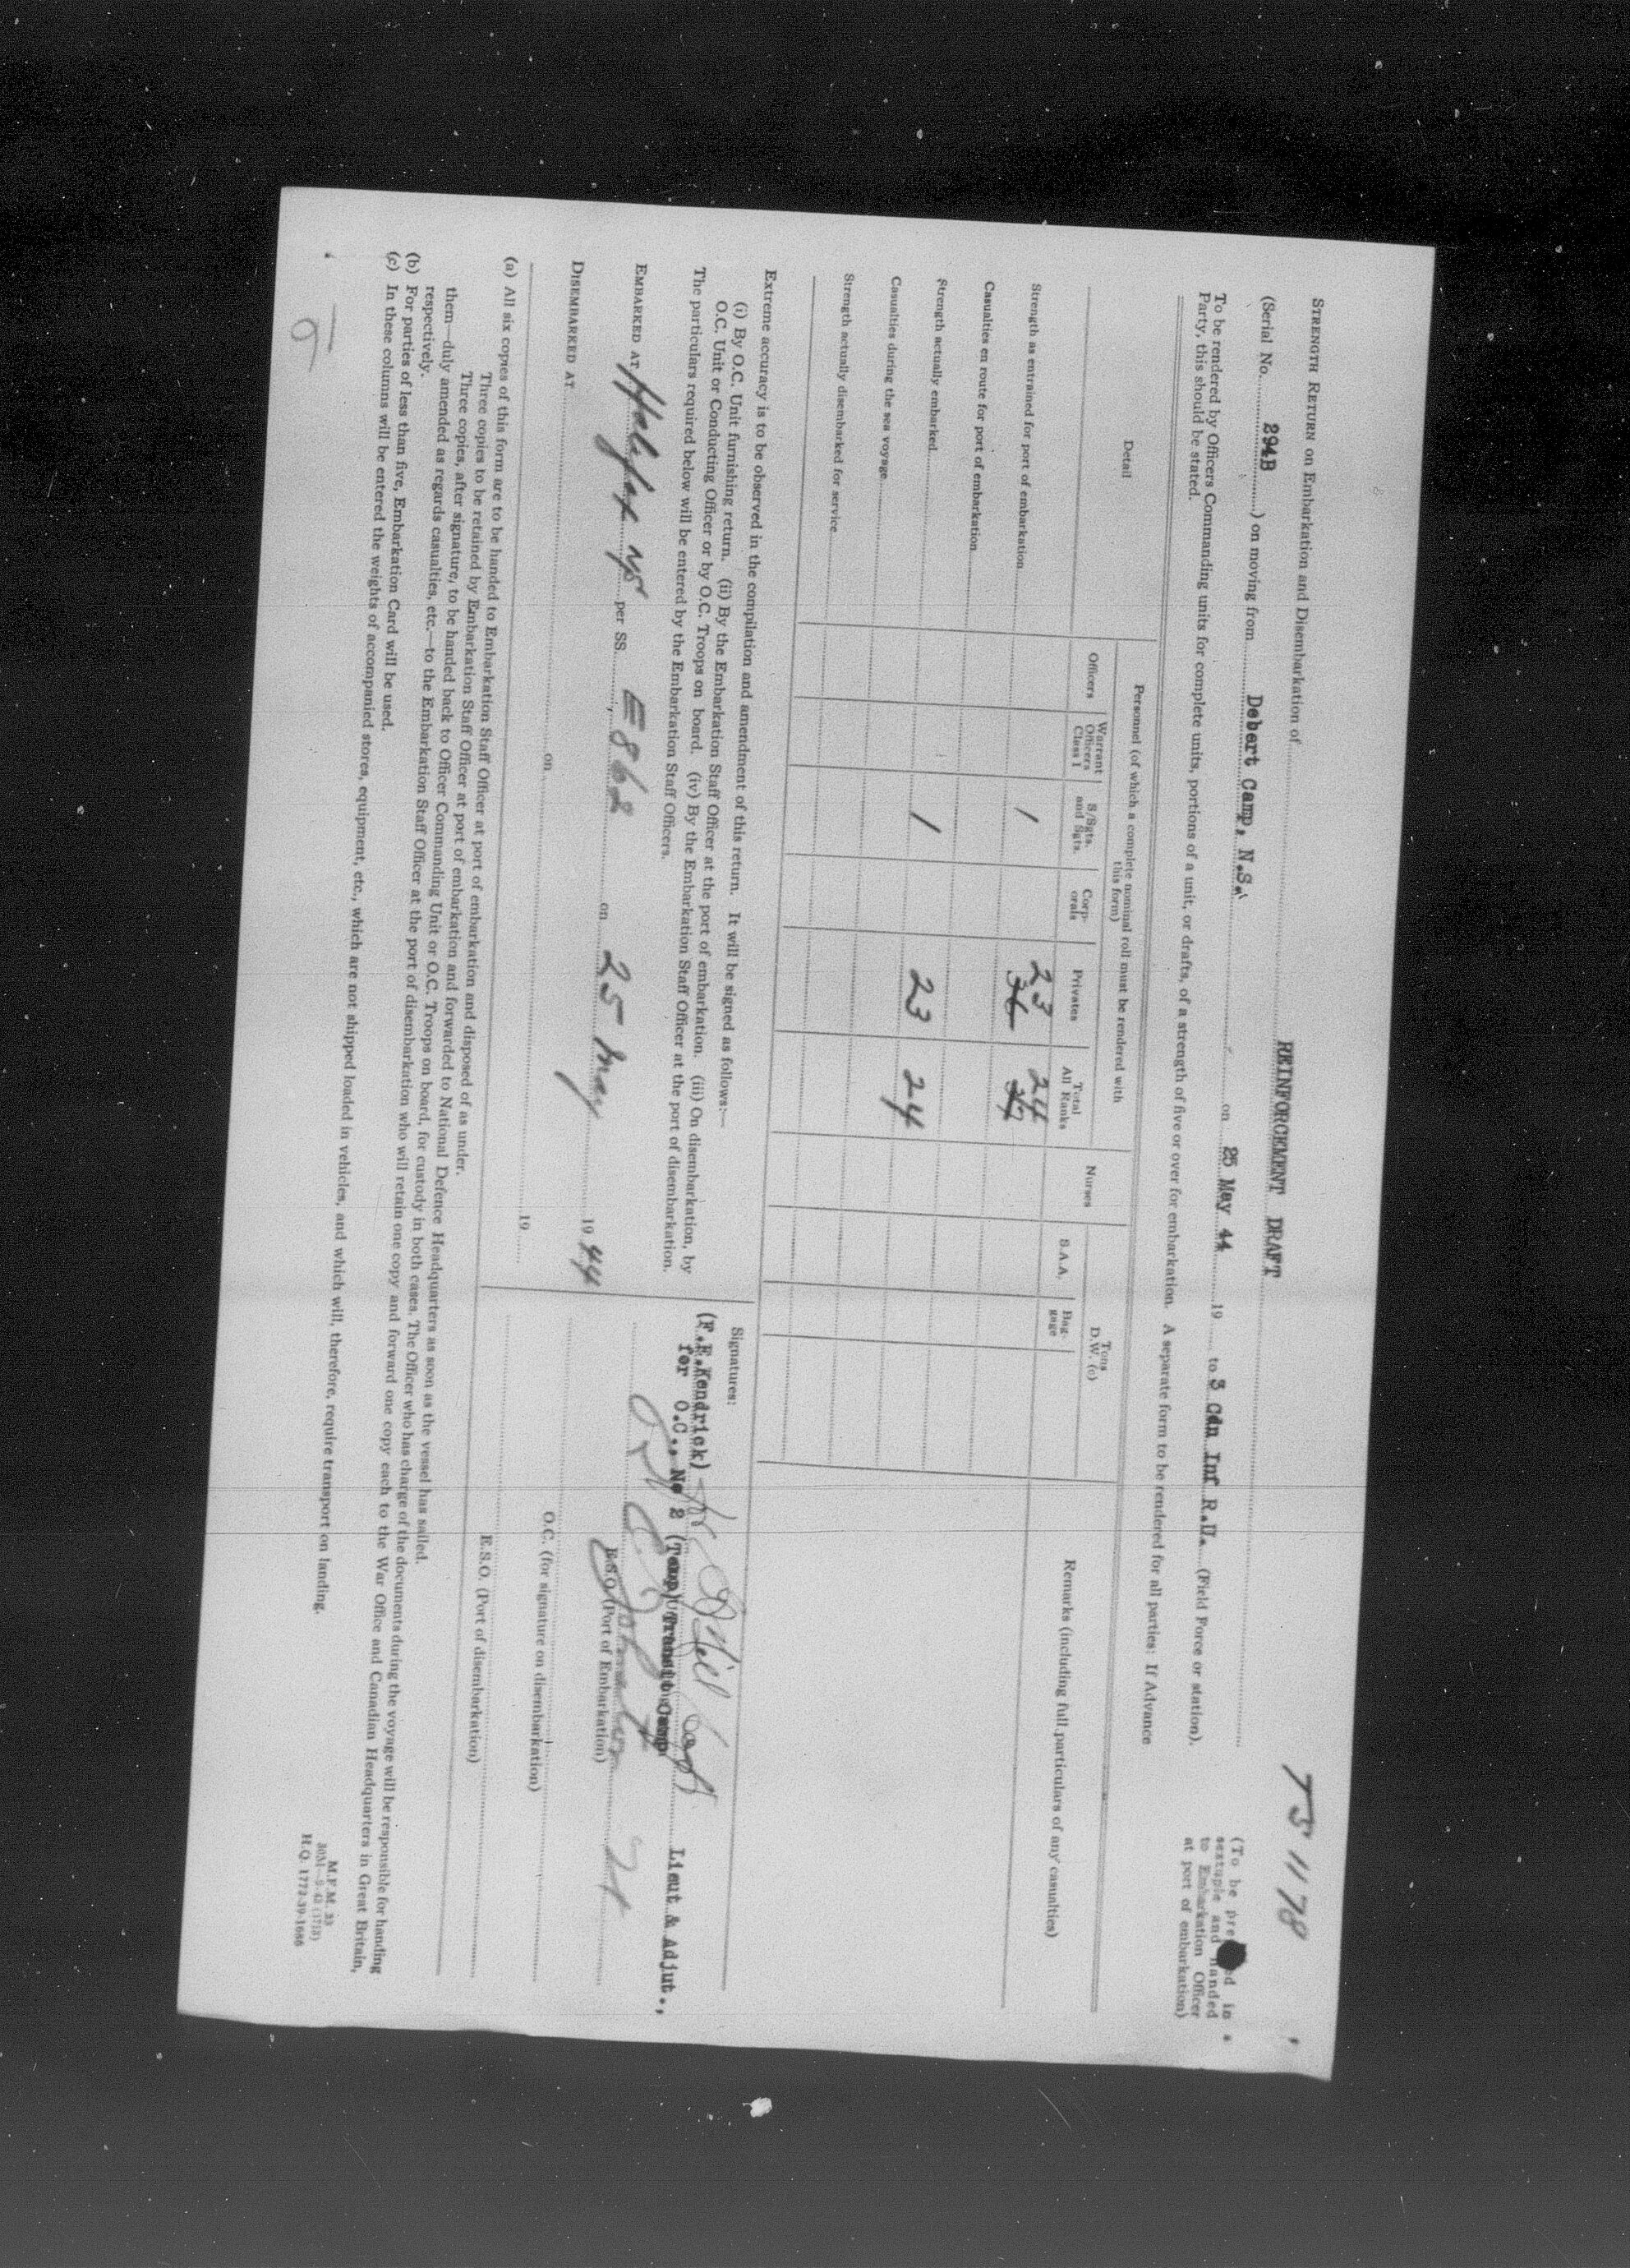 TS 1178
STRENGTH RETURN on Embarkation and Disembarkation of REINFORCEMENT DRAFT
(Serial No. 294B ) on moving from Debert Camp, N.S. on 25 May 44 19 to 3 Cdn Inf R.U. (Field Force or station).
(To be pre ed in
sextuple and handed
to Embarkation Officer
at port of embarkation)
To be rendered by Officers Commanding units for complete units, portions of a unit, or drafts, of a strength of five or over for embarkation. A separate form to be rendered for all parties: If Advance
Party, this should be stated.
Detail
Personnel (of which a complete nominal roll must be rendered with
this form)
Officers
Warrant
Officers
Class I
S/Sgts.
and Sgts.
Corp-
orals
Privates
Total
All Ranks
Nurses
Tons
D.W. (c)
S.A.A.
Bag-
gage
Remarks (including full particulars of any casualties)
Strength as entrained for port of embarkation 1 23 36 24 37
Casualties en route for port of embarkation
Strength actually embarked 1 23 24
Casualties during the sea voyage
Strength actually disembarked for service
Extreme accuracy is to be observed in the compilation and amendment of this return. It will be signed as follows:—
(i) By O.C. Unit furnishing return. (ii) By the Embarkation Staff Officer at the port of embarkation. (iii) On disembarkation, by
O.C. Unit or Conducting Officer or by O.C. Troops on board. (iv) By the Embarkation Staff Officer at the port of disembarkation.
The particulars required below will be entered by the Embarkation Staff Officers.
EMBARKED AT Halifax NS per SS. E862 on 25 May 19 44
DISEMBARKED AT on 19
Signatures:
(F.E.Kendrick) Capt Lieut & Adjut.,
for O.C., No 2 (Temp) Transit Camp
E.S.O. (Port of Embarkation)
O.C. (for signature on disembarkation)
E.S.O. (Port of disembarkation)
(a) All six copies of this form are to be handed to Embarkation Staff Officer at port of embarkation and disposed of as under.
Three copies to be retained by Embarkation Staff Officer at port of embarkation and forwarded to National Defence Headquarters as soon as the vessel has sailed.
Three copies, after signature, to be handed back to Officer Commanding Unit or O.C. Troops on board, for custody in both cases. The Officer who has charge of the documents during the voyage will be responsible for handing
them—duly amended as regards casualties, etc.—to the Embarkation Staff Officer at the port of disembarkation who will retain one copy and forward one copy each to the War Office and Canadian Headquarters in Great Britain,
respectively.
(b) For parties of less than five, Embarkation Card will be used.
(c) In these columns will be entered the weights of accompanied stores, equipment, etc., which are not shipped loaded in vehicles, and which will, therefore, require transport on landing.
M.F.M. 33
H.Q. 1772-39-1686